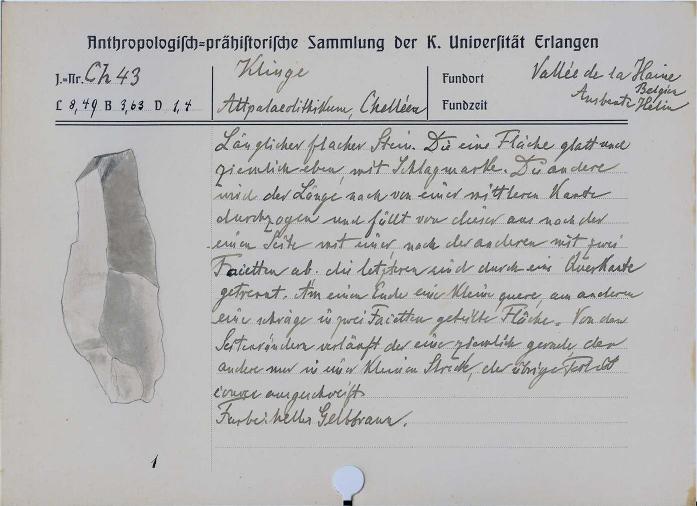 Anthropologisch=prähistorische Sammlung der K. Universität Erlangen
J.=Nr. Ch 43
L 8,49 B 3,63 D 1,4
Klinge
Altpalaeolithikum, Chelléen
Fundort Vallée de la Haine
Belgien
Fundzeit Helin
Länglicher flacher Stein. Die eine Fläche glatt und
ziemlich eben, mit Schlagmarke. Die andere
wird der Länge nach von einer mittleren Kante
durchzogen und fällt von dieser aus nach der
einen Seite mit einer, nach der anderen mit zwei
Facetten ab. die letzteren sind durch eine Querkante
getrennt. Am einem Ende eine kleine quere, am anderen
eine schräge in zwei Facetten geteilte Fläche. Von den
Seitenrändern verläuft der eine ziemlich gerade, der
andere nur in einer kleinen Strecke, der übrige Teil ist
ausgeschweift
Farbe: helles Gelbbraun.
1